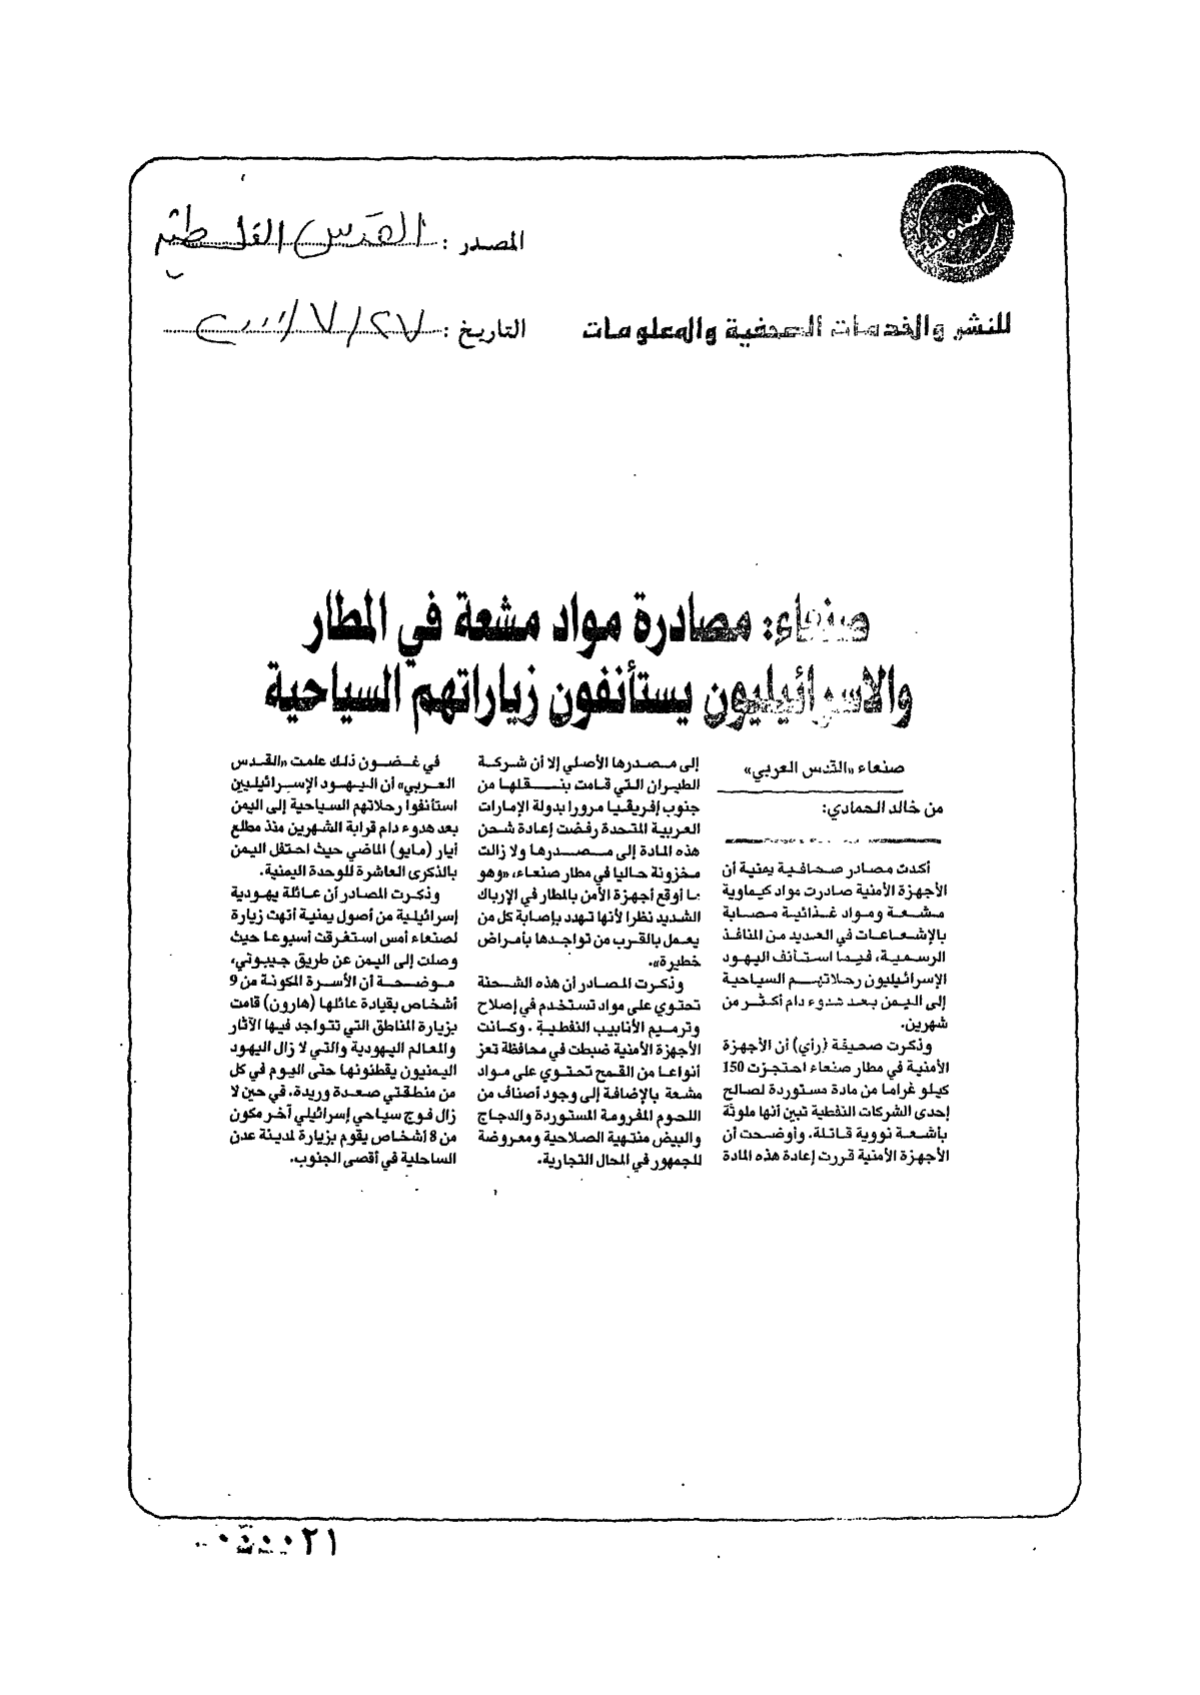 المصدر : القدس الفلسطينية
للنشر والخدمات الصحفية والمعلومات
التاريخ : ٢٧ / ٧ / ٢٠٠٠
صنعاء: مصادرة مواد مشعة في المطار
والاسرائيليون يستأنفون زياراتهم السياحية
صنعاء «القدس العربي»
من خالد الحمادي:
أكدت مصادر صحافية يمنية أن
الأجهزة الأمنية صادرت مواد كيماوية
مشعة ومواد غذائية مصابة
بالإشعاعات في العديد من المنافذ
الرسمية، فيما استأنف اليهود
الإسرائيليون رحلاتهم السياحية
إلى اليمن بعد هدوء دام أكثر من
شهرين.
وذكرت صحيفة (رأي) أن الأجهزة
الأمنية في مطار صنعاء احتجزت 150
كيلو غراما من مادة مستوردة لصالح
إحدى الشركات النفطية تبين أنها ملوثة
بأشعة نووية قاتلة. وأوضحت أن
الأجهزة الأمنية قررت إعادة هذه المادة
إلى مصدرها الأصلي إلا أن شركة
الطيران التي قامت بنقلها من
جنوب إفريقيا مرورا بدولة الإمارات
العربية المتحدة رفضت إعادة شحن
هذه المادة إلى مصدرها ولا زالت
مخزونة حاليا في مطار صنعاء، «وهو
ما أوقع أجهزة الأمن بالمطار في الإرباك
الشديد نظرا لأنها تهدد بإصابة كل من
يعمل بالقرب من تواجدها بأمراض
خطيرة».
وذكرت المصادر أن هذه الشحنة
تحتوي على مواد تستخدم في إصلاح
وترميم الأنابيب النفطية . وكانت
الأجهزة الأمنية ضبطت في محافظة تعز
أنواعا من القمح تحتوي على مواد
مشعة بالإضافة إلى وجود أصناف من
اللحوم المفرومة المستوردة والدجاج
والبيض منتهية الصلاحية ومعروضة
للجمهور في المحال التجارية.
في غضون ذلك علمت «القدس
العربي» أن اليهود الإسرائيليين
استأنفوا رحلاتهم السياحية إلى اليمن
بعد هدوء دام قرابة الشهرين منذ مطلع
أيار (مايو) الماضي حيث احتفل اليمن
بالذكرى العاشرة للوحدة اليمنية.
وذكرت المصادر أن عائلة يهودية
إسرائيلية من أصول يمنية أنهت زيارة
لصنعاء أمس استغرقت أسبوعا حيث
وصلت إلى اليمن عن طريق جيبوتي،
موضحة أن الأسرة المكونة من 9
أشخاص بقيادة عائلها (هارون) قامت
بزيارة المناطق التي تتواجد فيها الآثار
والمعالم اليهودية والتي لا زال اليهود
اليمنيون يقطنونها حتى اليوم في كل
من منطقتي صعدة وريدة، في حين لا
زال فوج سياحي إسرائيلي آخر مكون
من 8 أشخاص يقوم بزيارة لمدينة عدن
الساحلية في أقصى الجنوب.